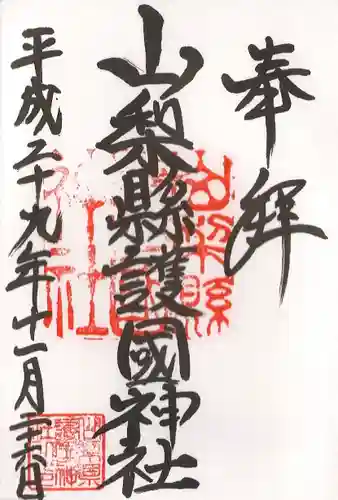 奉拝
山梨縣護國神社
平成二十九年十一月二十六日